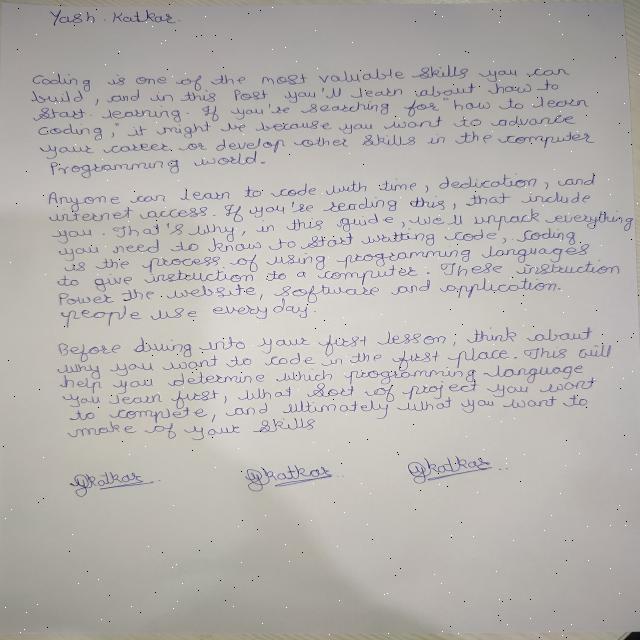 Yash Katkar.
Coding is one of the most valuable skills you can
build, and in this Post you'll learn about how to
start learning. If you're searching for "how to learn
Coding," it might be because you want to advance
your career or develop other skills in the computer
Programming world.
Anyone can learn to code with time, dedication, and
internet access. If you're reading this, that include
you. That's why, in this guide, we'll unpack everything
you need to know to start writting code, coding
is the process of using programming languages
to give instruction to a computer. These instruction
Power the website, software and application.
people use everyday.
Before diving into your first lesson, think about
why you want to code in the first place. This will
help you determine which programming language
you learn first, what sort of project you want
to complete, and ultimately what you want to
make of your skills
ykatkar ykatkar ykatkar